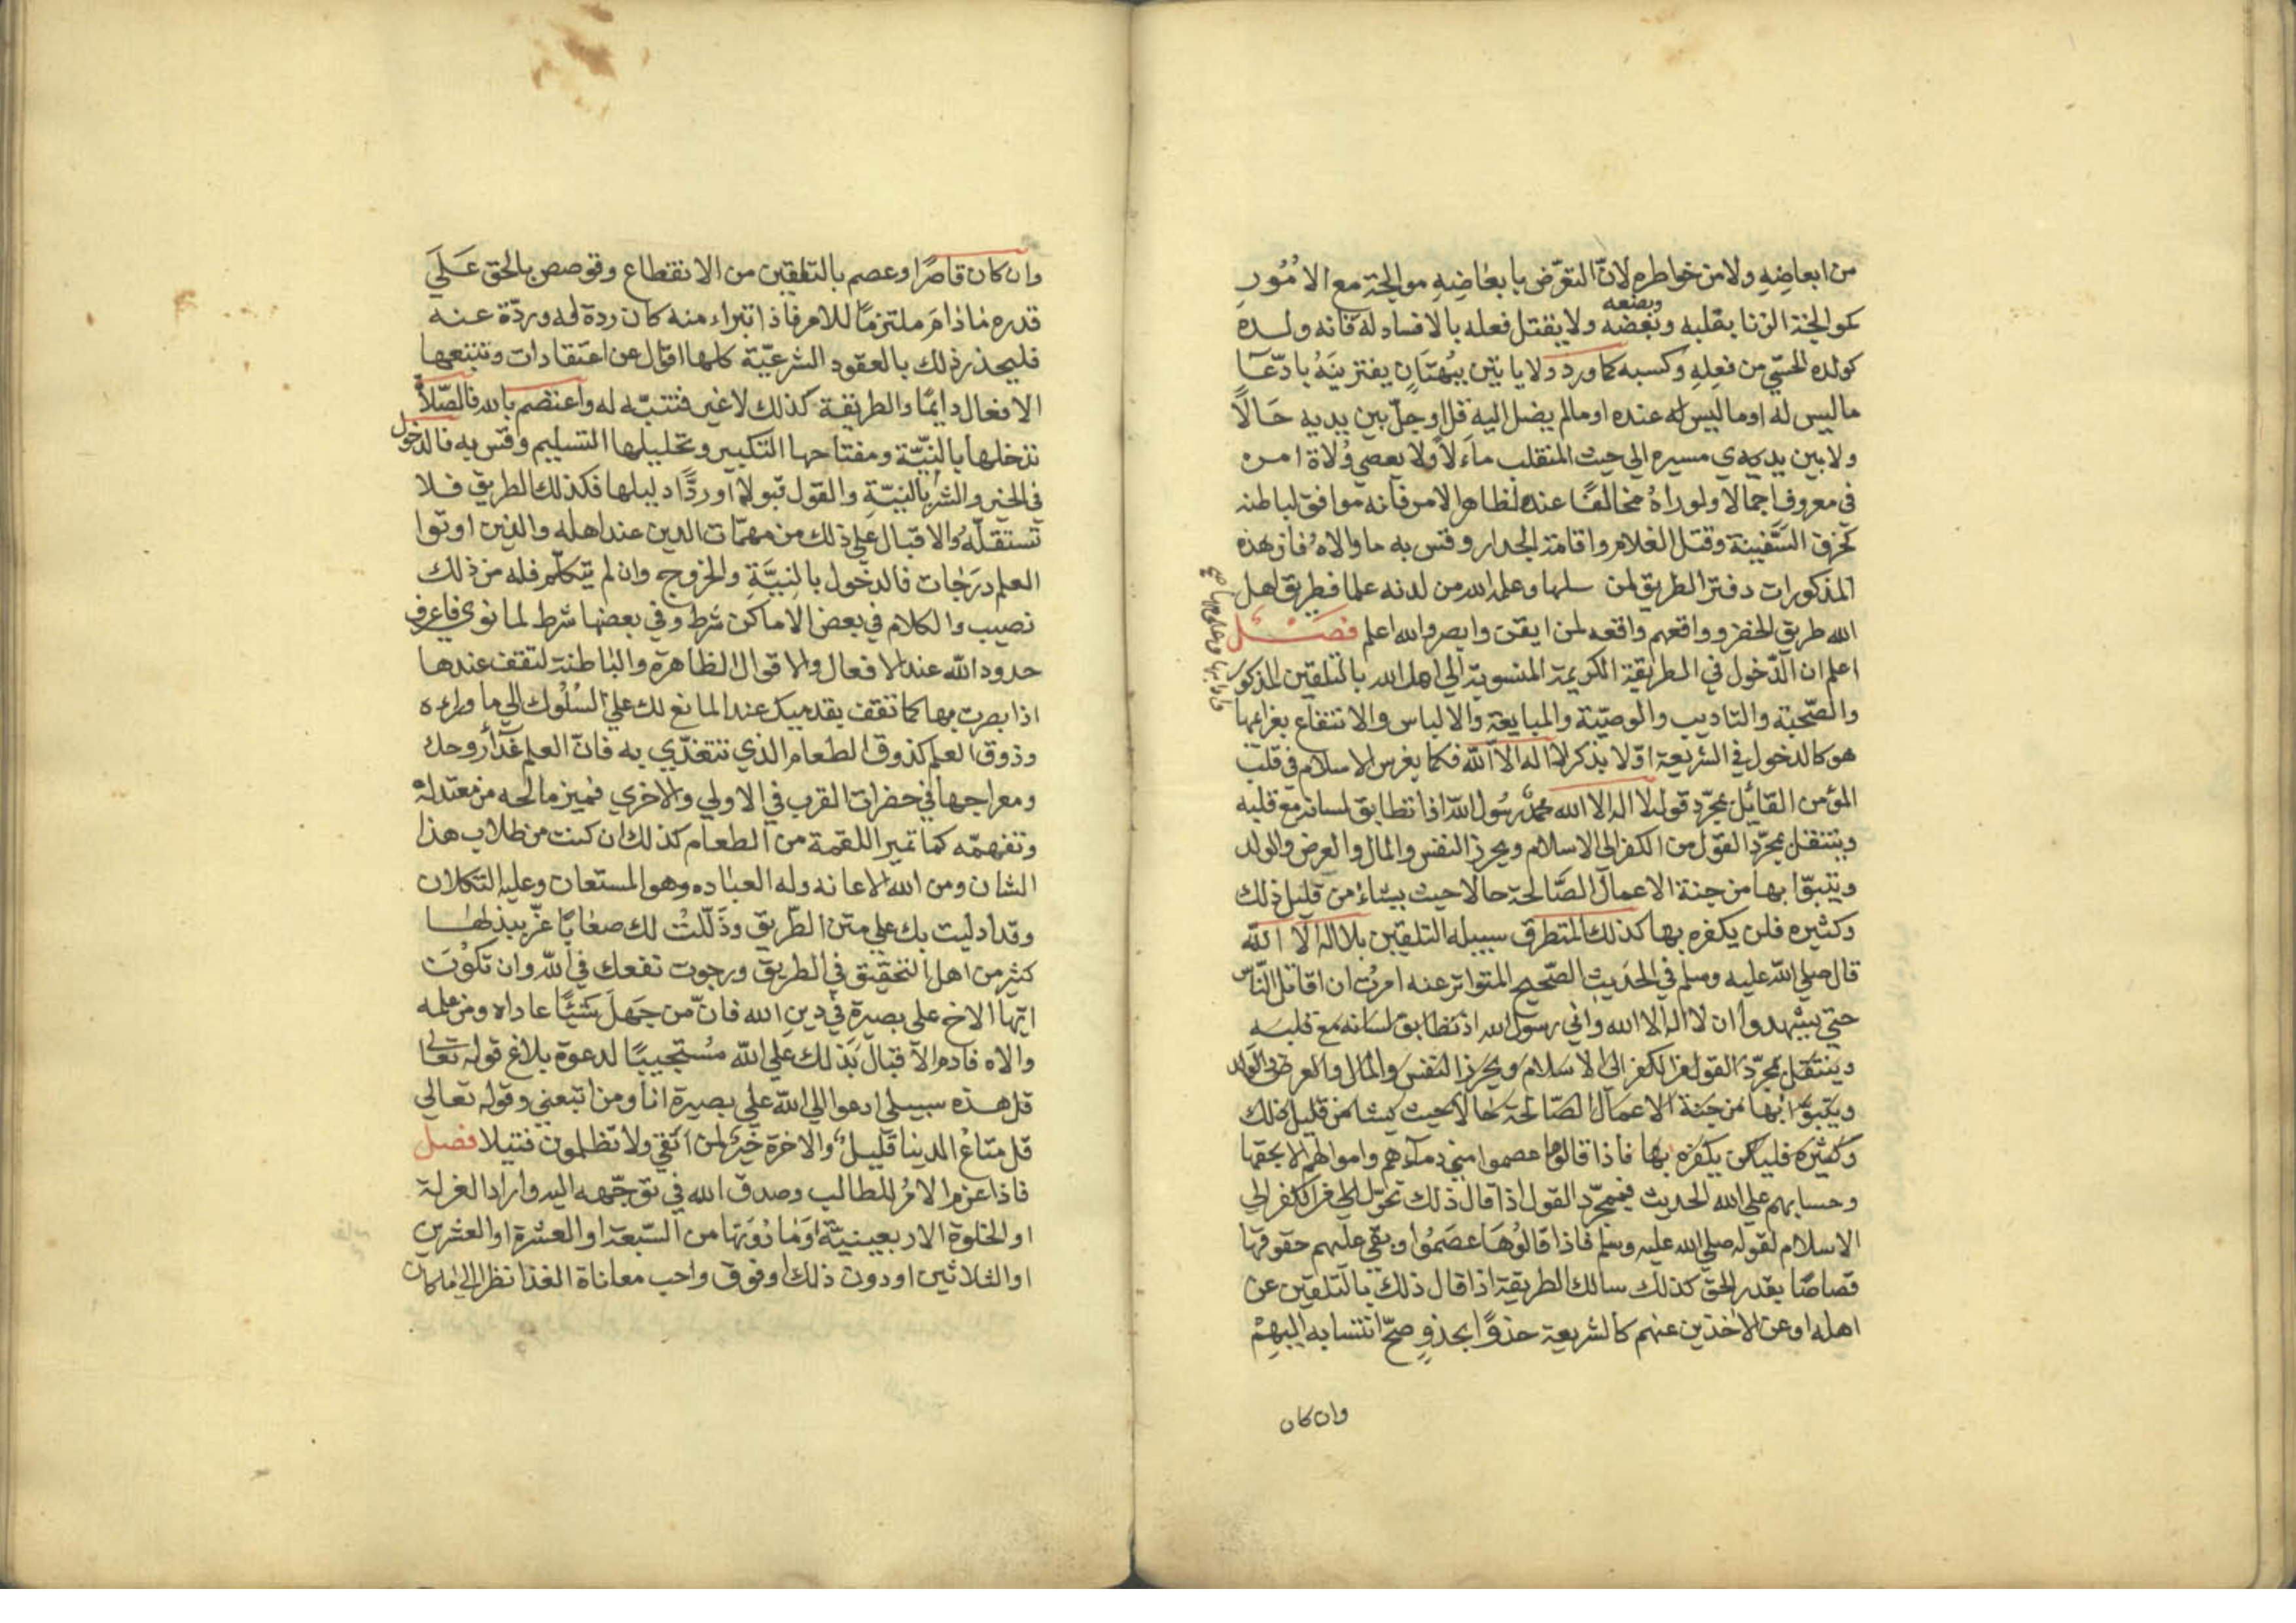 من ابعاضه ولا من خواطره لانّ التعرّض بابعاضه موالجة مع الامُور
كموالجة الزنا بقلبه وبعضه ولا يقتل فعله بالافساد له فانه ولده
وبضعه
كولده الحسّي من فعله وكسبه كما ورد ولا ياتين ببُهتَانٍ يفترينَهُ بادّعآ
ما ليس له او ما ليس له عنده او ما لم يصل اليه قل او جلّ بين يديه حَالاً
ولا بين يدي مسيره الى حيث المنقلب مآلاً ولا يعصي وُلاة امره
في معروف اجمالا ولو راهُ مخالفًا عنده لظاهر الامر فانه موافق لباطنه
كخرق السَّفينة وقتل الغلام واقامة الجدار وقس به ما والاهُ فان هذه
المذكورات دفتر الطريق لمن سلمها وعلمه الله من لدنه علما فطريق اهل
الله طريق الخضر وواقعهم واقعه لمن ايقن وابصر والله اعلم فصَـل
اعلم ان الدّخول في الطريقة الكريمة المنسوبة الي اهل الله بالتلقين المذكور
والصّحبة والتاديب والوصيّة والمبايعة والالباس والانتفاع
هو كالدخول في الشريعة اوّلا بذكر لا اله الا الله فكما يغرس الاسلام في قلب
المؤمن القائل بمجرّد قوله لا اله الا الله محمد رسُول الله اذا تطابق لسانه مع قلبه
وينتقل بمجرّد القول من الكفر الي الاسلام ويحرز النفس والمال والعرض والولد
ويتبوّا بها من جنة الاعمال الصَّالحة حالا حيث يشاء من قليل ذلك
وكثيره فلن يكفره بها كذلك المتطرق سبيله التلقين بلا اله الا الله
قال صلي الله عليه وسلم في الحديث الصّحيح المتواتر عنه امرتُ ان اقاتل النّاس
حتي يشهدوا ان لا اله الا الله واني رسول الله اذ تطابق لسانه مع قلبه
وينتقل بمجرّد القول من الكفر الي الاسلام ويحرز النفس والمال والعرض والولد
ويتبوّا بها من جنة الاعمال الصّالحة حالا حيث يشا من قليل ذلك
وكثيره بها فاذا قالوها عصموا مني دمآءهم واموالهم الا بحقها
وحسابهم علي الله الحديث فبمجرّد القول اذا قال ذلك تحوّل الكفر الي
الاسلام لقوله صلي الله عليه وسلم فاذا قالوُهَا عصَمُوا وبقي عليهم حقوقها
قصاصًا بقدر الحق كذلك سالك الطريقة اذا قال ذلك بالتلقين عن
اهله او عن الاخذين عنهم كالشريعة حذوًا بحذوٍ صحّ انتسابه اليهمْ
وان كان
وان كان قاصرًا وعصم بالتلقين من الانقطاع وقوصص بالحق عَلَي
قدره مَاذامَ ملتزمًا للامر فاذا تبراء منه كان ردة له وردّة عنه
فليحذر ذلك بالعقود الشرعيّة كلها اقول عن اعتقادات وتتبعها
الافعال دايمًا والطريقة كذلك لا غير فتنبّه له واعتصم بالله فالصّلاة
تدخلها بالنيّة ومفتاحها التكبير وتحليلها التسليم وقس به فالدخول
في الخير والشر بالنيّةِ والقول قبولًا او ردًّا دليلها فكذلك الطريق فلا
تستقلّهُ والاقبال علي ذلك من مهمّات الدين عند اهله والذين اوتوا
العلم درَجَات فالدخول بالنيَّةِ والخروج وان لم يتكلّم فله من ذلك
نصيب والكلام في بعض الاماكن شرط وفي بعضها شرط لما نوي فاعرف
حدود الله عند الافعال والاقوال الظاهرة والبَاطنة لتقف عندها
اذا بصرت بها كما تقف بقدميك عند المانع لك علي السُلُوك الي ما وراءه
وذوق العلم كذوق الطعام الذي تتغذّي به فانّ العلم غَذآ روحك
ومعراجها في حضرات القرب في الاولي والاخري فميز مالحه من معتدله
وتفهمّه كما تميز اللقمة من الطعام كذلك ان كنت من طلاب هذا
الشان ومن الله الاعانه وله العباده وهو المستعان وعليه التكلان
وقد ادليت بك علي متن الطّريق وذَلّلتُ لك صعَابًا عزّ بيذلها
كثير من اهل التحقيق في الطريق ورجوت نفعك في الله وان تكوُنَ
ايّها الاخ علي بصيرة في دين الله فانّ من جَهلَ شَيْئًا عاداه ومن علمه
والاه فادم الاقبال بَذلك عَلي الله مُستجيبًا لدعوة بلاغ قوله تعالى
قل هذه سبيلي ادعوا الي الله علي بصيرة انا ومن اتبعني وقوله تعالي
قل متاعُ الدنيا قليلٌ والاخرة خيرٌ لمن اتقي ولا تظلمون فتيلا فصل
فاذا عزم الامرُ للطالب وصدق الله في توجّهه اليه واراد العزلة
او الخلوة الاربعينيّة اوَمَا دُوَنهَا من السّبعة او العشرة او العشرين
او الثلاثين او دون ذلك او فوق واحب معاناة الغذا نظر الي